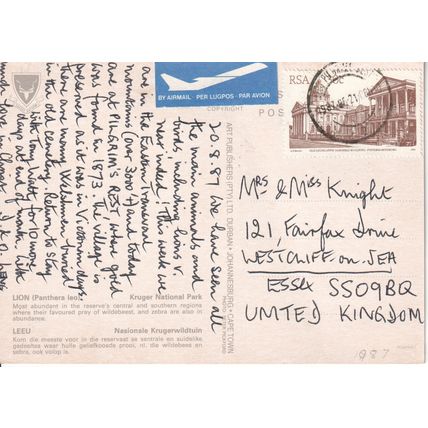 BY AIRMAIL · PER LUGPOS · PAR AVION
COPYRIGHT
POS
RSA
ART PUBLISHERS (PTY) LTD. DURBAN · JOHANNESBURG · CAPE TOWN
20.8.87 We have seen all
the main animals and
birds, including lions v.
near indeed! This week we
are in the Eastern Transvaal
mountains (over 3000') and today
are at PILGRIM'S REST, where gold
was found in 1873. The village is
preserved as it was in Victorian days
There are many Welshmen buried
in the old cemetery. Return to stay
with Tony Watt for 10 more
days at end of month. Like
LION (Panthera leo) Kruger National Park
Most abundant in the reserve's central and southern regions
where their favoured prey of wildebeest, and zebra are also in
abundance.
LEEU Nasionale Krugerwildtuin
Kom die meeste voor in die reservaat se sentrale en suidelike
gedeeltes waar hulle geliefkoosde prooi, nl. die wildebees en
sebra, ook volop is.
Mrs & Miss Knight
121, Fairfax Drive
WESTCLIFF-on-SEA
Essex SS09BQ
UNITED KINGDOM
1987